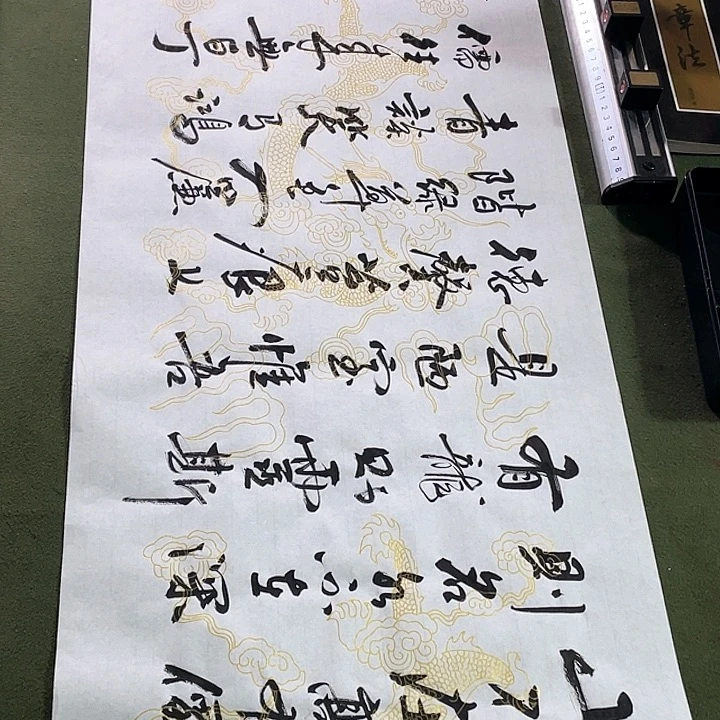 山不在高有仙
則名水不在深
有龍則靈斯
是陋室惟吾
德馨苔痕上
階綠草入簾
青談笑有鴻
儒往来無白丁
章法